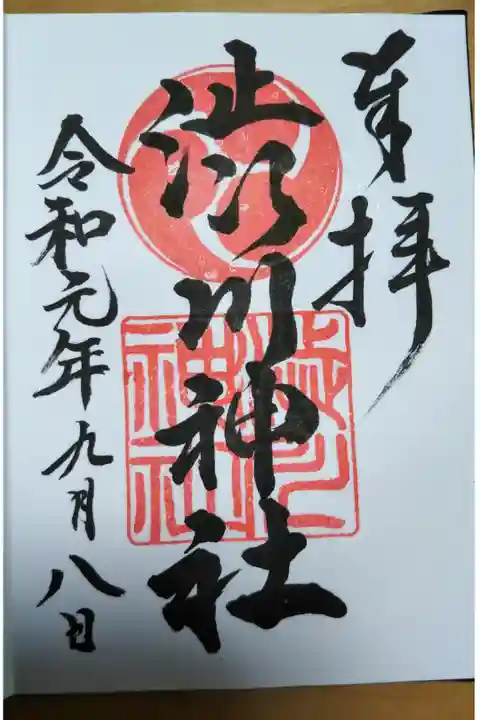 奉拝
渋川神社
渋川神社
令和元年九月八日